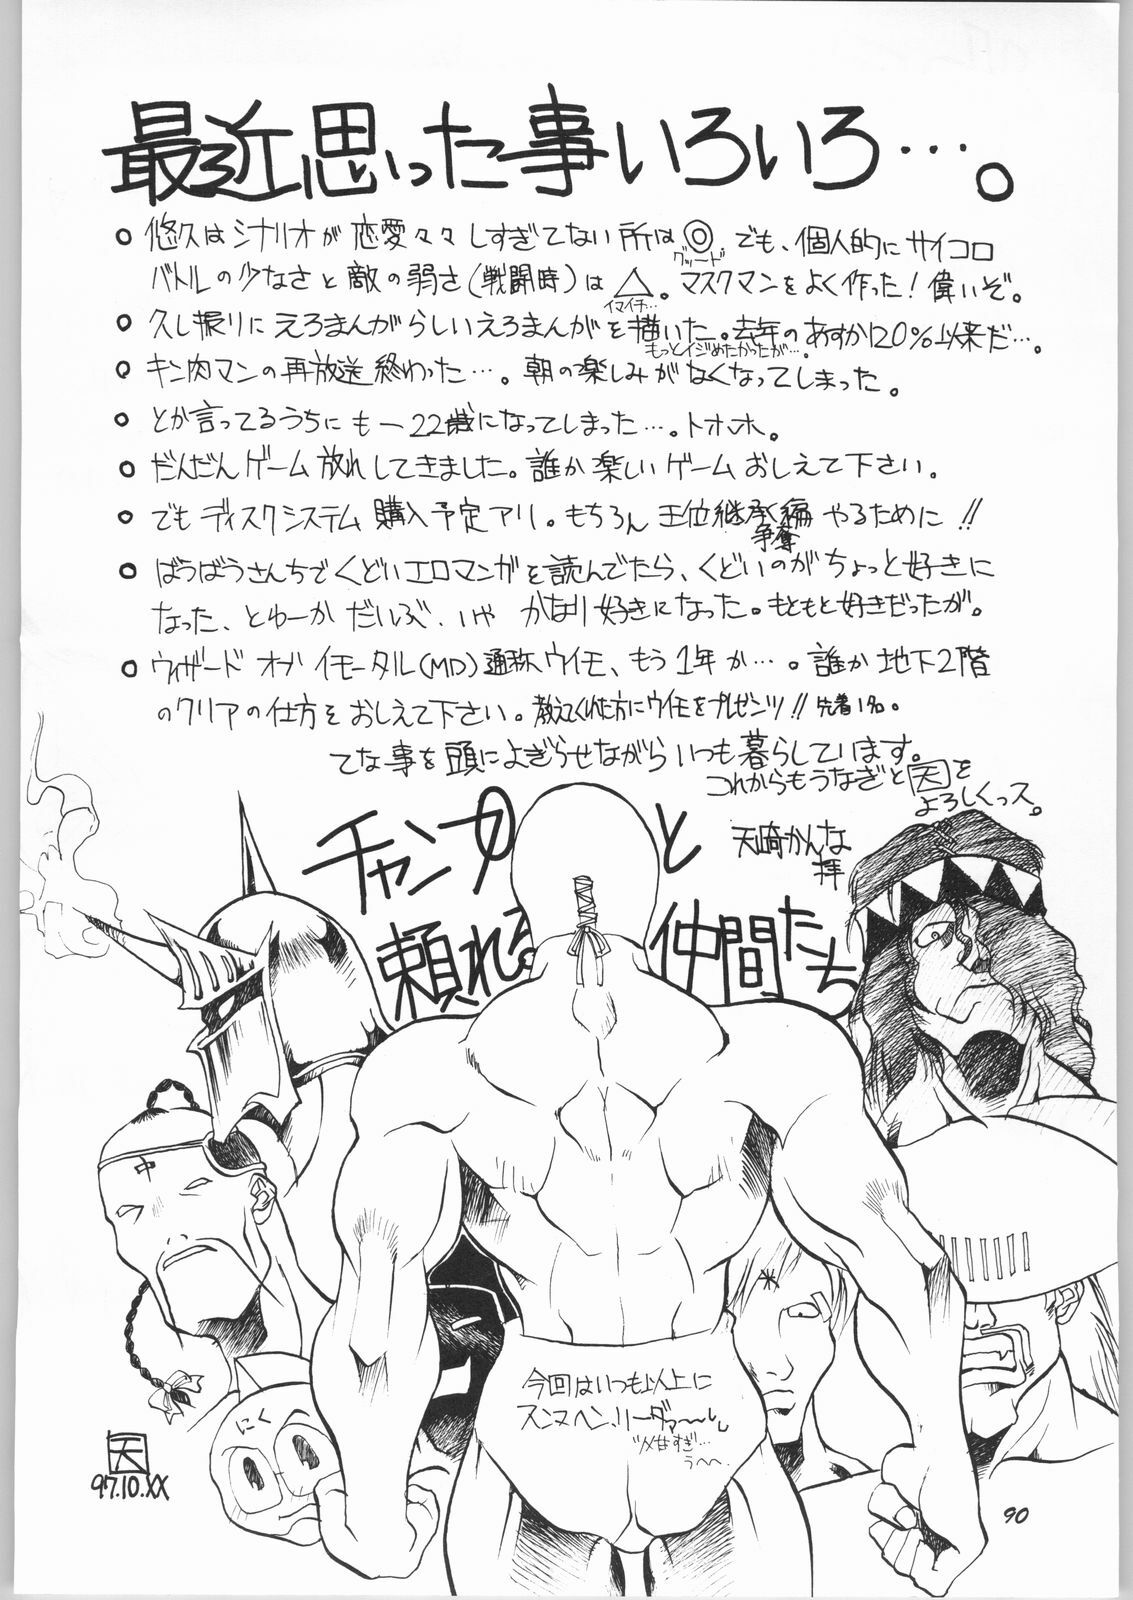 最近思った事いろいろ…。
○ 悠久はシナリオが恋愛々々しすぎてない所は◎。でも、個人的にサイコロ
グッード
バトルの少なさと敵の弱さ(戦闘時)は△。マスクマンをよく作った!偉いぞ。
イマイチ…
○ 久し振りにえろまんがらしいえろまんがを描いた。去年のあすか120%以来だ…。
もっとイジめたかったが…。
○ キン肉マンの再放送終わった…。朝の楽しみがなくなってしまった。
○ とか言ってるうちにもー22歳になってしまった…。トホホ。
○ だんだんゲーム放れしてきました。誰か楽しいゲームおしえて下さい。
○ でもディスクシステム購入予定アリ。もちろん王位継承編やるために!!
争奪
○ ばうばうさんちでくどいエロマンガを読んでたら、くどいのがちょっと好きに
なった、とゆーかだいぶ、いやかなり好きになった。もともと好きだったが。
○ ウィザードオブイモータル(MD)通称ウイモ、もう1年か…。誰か地下2階
のクリアの仕方をおしえて下さい。教えてくれた方にウイモをプレゼンツ!!先着1名。
てな事を頭によぎらせながらいつも暮らしています。
これからもうなぎと天を
よろしくっス。
天崎かんな
拝
チャンプと
頼れる仲間たち
中
にく
米
今回はいつも以上に
スンヌヘン、リーダァ〜〜し
ツメ甘すぎ…
う〜〜
天
97.10.XX
90